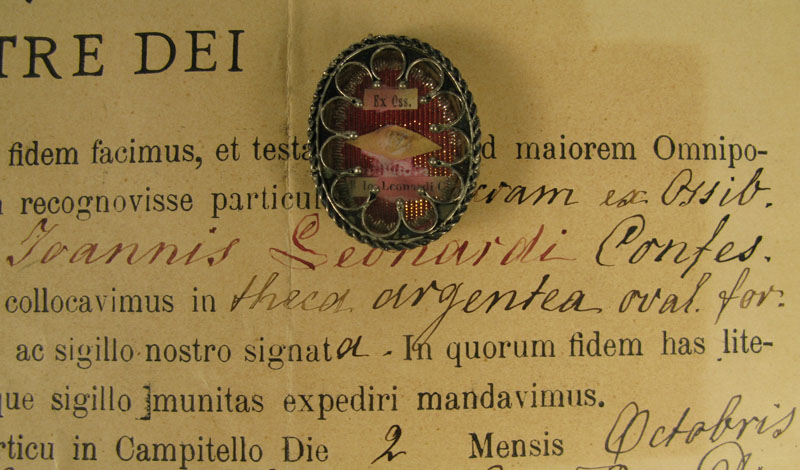 TRE DEI
Ex Oss.
Io. Leonardi C.
fidem facimus, et testa d maiorem Omnipo-
recognovisse particu cram ex Ossib.
Joannis Leonardi Confes.
collocavimus in theca argentea oval. for:
ac sigillo nostro signata. In quorum fidem has lite-
que sigillo ]munitas expediri mandavimus.
rticu in Campitello Die 2 Mensis Octobris